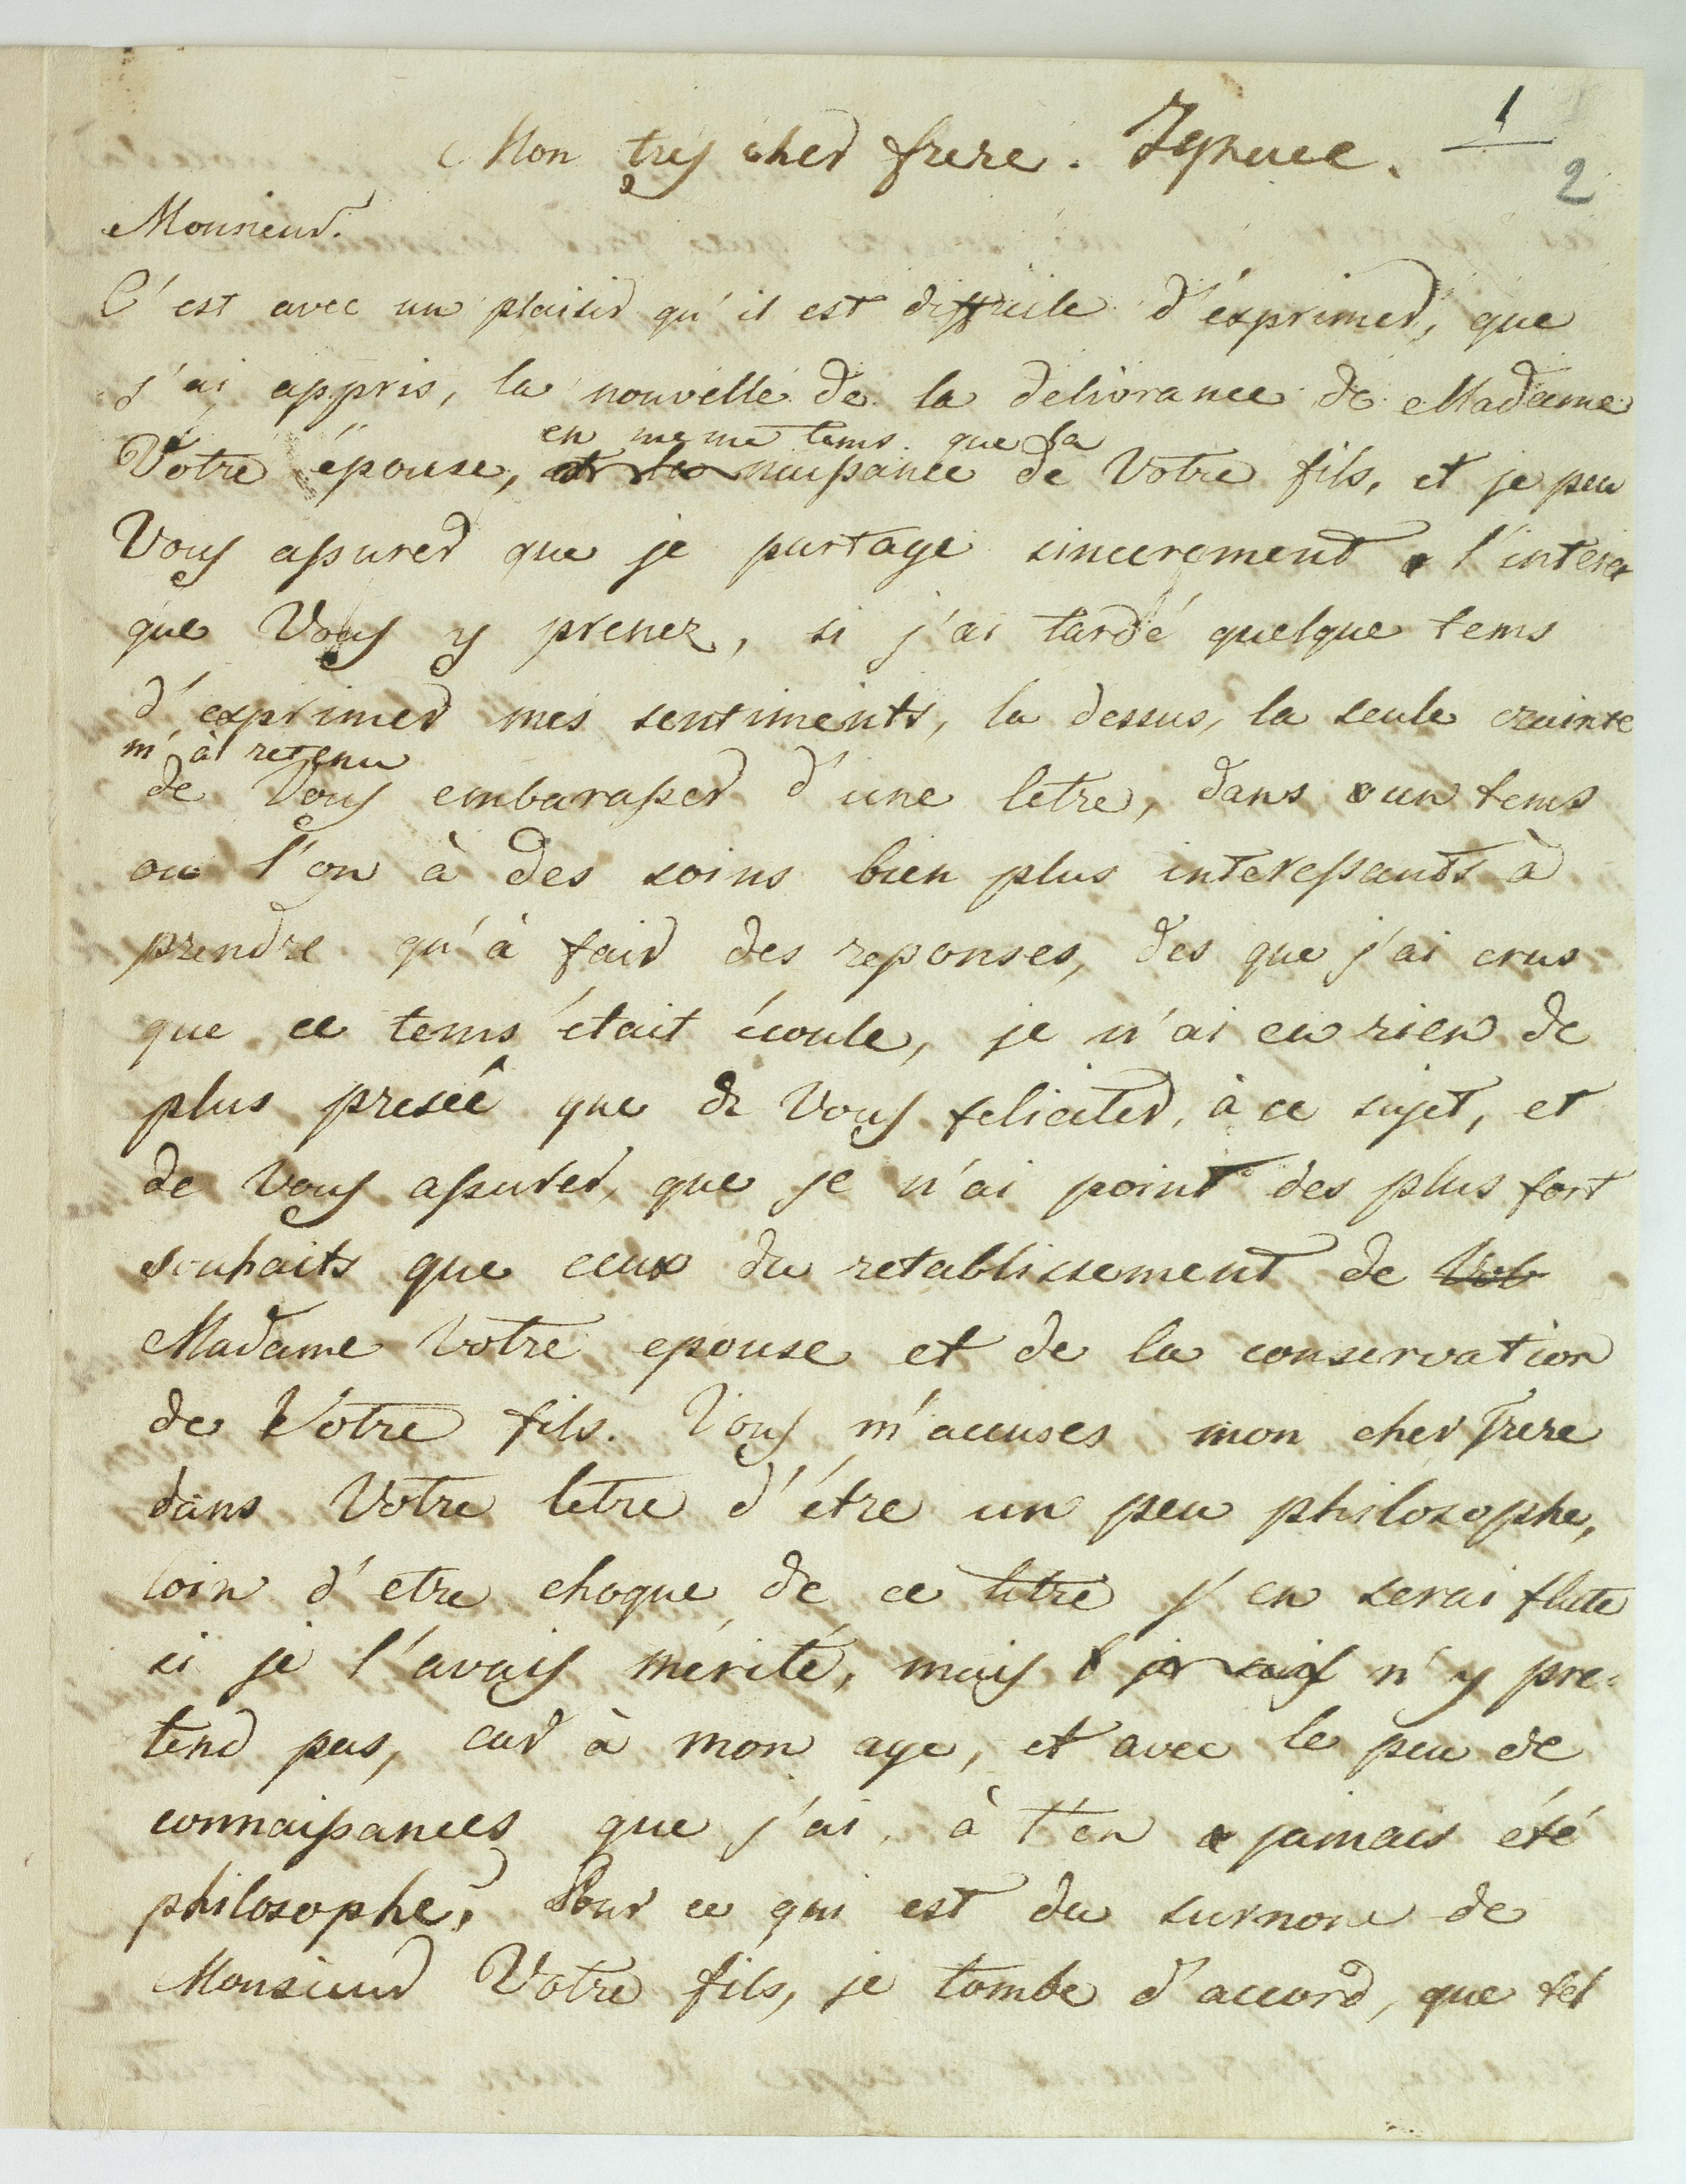 Mon très cher frere. Ignace. 1
2
Monsieur.
C'est avec un plaisir qu'il est difficile d'éxprimer, que
j'ai appris, la nouvelle de la delivrance de Madame
en meme tems que la
Votre épouse, et la naissance de Votre fils, et je peu
Vous assurer que je partage sincerement l'interet
que Vous y prenez, si j'ai tardé quelque tems
d'exprimer mes sentiments, la dessus, la seule crainte
m'à retenu
de Vous embarasser d'une letre, dans un tems
ou l'on à des soins bien plus interessants à
prendre qu'à fair des reponses, des que j'ai crus
que ce tems était écoule, je n'ai eu rien de
plus preseé que de Vous feliciter, à ce sujet, et
de Vous assurer, que je n'ai point des plus fort
souhaits que ceux du retablissement de Vot
Madame Votre epouse et de la conservation
de Votre fils. Vous m'accuses mon cher frere
dans Votre letre d'étre un peu philosophe,
loin d'etre choque de ce titre j'en serai flate
si je l'avais mérité, mais je n'y pre-
tend pas, car à mon age, et avec le peu de
connaissances que j'ai, à t'en jamais été
philosophe? Pour ce qui est du surnom de
Monsieur Votre fils, je tombe d'accord, que tel